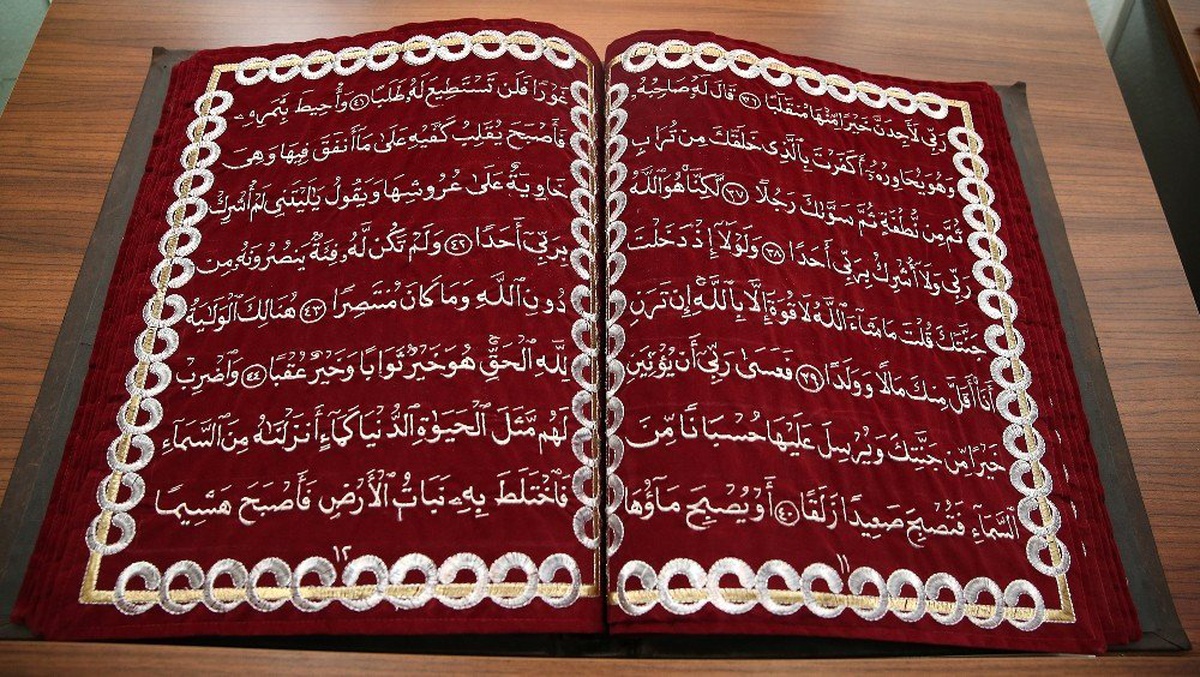 رَبِّى لَأَجِدَنَّ خَيْرًا مِّنْهَا مُنقَلَبًا ٣٦ قَالَ لَهُۥ صَاحِبُهُۥ
وَهُوَ يُحَاوِرُهُۥٓ أَكَفَرْتَ بِٱلَّذِى خَلَقَكَ مِن تُرَابٍ
ثُمَّ مِن نُّطْفَةٍ ثُمَّ سَوَّىٰكَ رَجُلًا ٣٧ لَّٰكِنَّا۠ هُوَ ٱللَّهُ
رَبِّى وَلَآ أُشْرِكُ بِرَبِّىٓ أَحَدًا ٣٨ وَلَوْلَآ إِذْ دَخَلْتَ
جَنَّتَكَ قُلْتَ مَا شَآءَ ٱللَّهُ لَا قُوَّةَ إِلَّا بِٱللَّهِ إِن تَرَنِ
أَنَا۠ أَقَلَّ مِنكَ مَالًا وَوَلَدًا ٣٩ فَعَسَىٰ رَبِّىٓ أَن يُؤْتِيَنِ
خَيْرًا مِّن جَنَّتِكَ وَيُرْسِلَ عَلَيْهَا حُسْبَانًا مِّنَ
ٱلسَّمَآءِ فَتُصْبِحَ صَعِيدًا زَلَقًا ٤٠ أَوْ يُصْبِحَ مَآؤُهَا
١١
غَوْرًا فَلَن تَسْتَطِيعَ لَهُۥ طَلَبًا ٤١ وَأُحِيطَ بِثَمَرِهِۦ
فَأَصْبَحَ يُقَلِّبُ كَفَّيْهِ عَلَىٰ مَآ أَنفَقَ فِيهَا وَهِىَ
خَاوِيَةٌ عَلَىٰ عُرُوشِهَا وَيَقُولُ يَٰلَيْتَنِى لَمْ أُشْرِكْ
بِرَبِّىٓ أَحَدًا ٤٢ وَلَمْ تَكُن لَّهُۥ فِئَةٌ يَنصُرُونَهُۥ مِن
دُونِ ٱللَّهِ وَمَا كَانَ مُنتَصِرًا ٤٣ هُنَالِكَ ٱلْوَلَٰيَةُ
لِلَّهِ ٱلْحَقِّ هُوَ خَيْرٌ ثَوَابًا وَخَيْرٌ عُقْبًا ٤٤ وَٱضْرِبْ
لَهُم مَّثَلَ ٱلْحَيَوٰةِ ٱلدُّنْيَا كَمَآءٍ أَنزَلْنَٰهُ مِنَ ٱلسَّمَآءِ
فَٱخْتَلَطَ بِهِۦ نَبَاتُ ٱلْأَرْضِ فَأَصْبَحَ هَشِيمًا
١٢